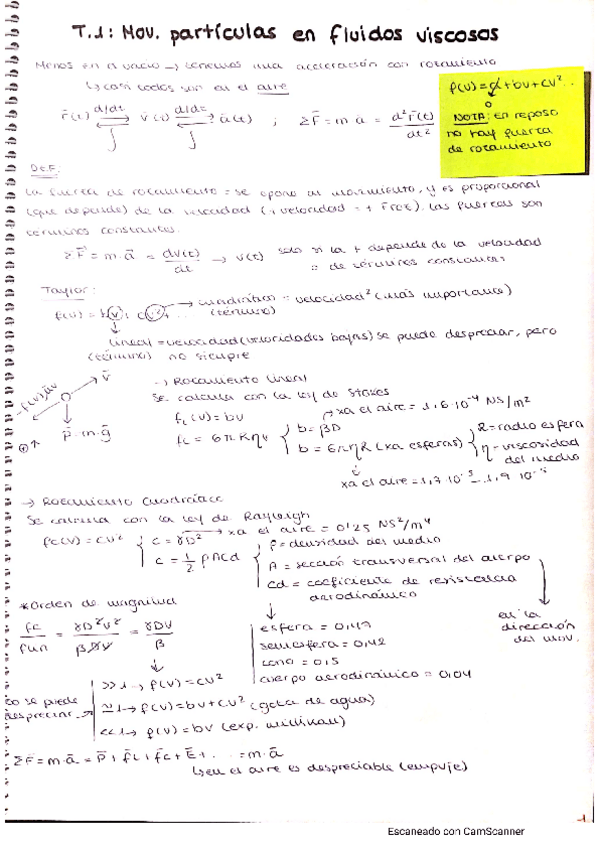 T.1: Mov. partículas en fluidos viscosos
Menos en el vacío → tenemos una aceleración con rozamiento
↳ casi todos son en el aire
f(v) = a + bv + cv² ...
0
NOTA: En reposo
no hay fuerza
de rozamiento
r̄(t) d/dt ⇄ ∫ v̄(t) d/dt ⇄ ∫ ā(t) ; ΣF̄ = m·ā = d²r̄(t)/dt²
DEF:
La fuerza de rozamiento = se opone al movimiento, y es proporcional
(que depende) de la velocidad (+ velocidad = + froz). Las fuerzas son
términos constantes.
ΣF̄ = m·ā = dv(t)/dt → v(t) solo si la f depende de la velocidad
= de términos constantes
Taylor:
f(v) = bv + cv² + ...
cuadrático = velocidad² (más importante)
(término)
lineal = velocidad (velocidades bajas) se puede despreciar, pero
(término) no siempre
-f(v)·ûv
v̄
p̄·m·ḡ
→ Rozamiento lineal
Se calcula con la ley de Stokes
fL(v) = bv
xa el aire = 1,6·10⁻⁴ NS/m²
fL = 6πRηv
b = βD
b = 6πηR (xa esferas)
R = radio esfera
η = viscosidad
del medio
xa el aire = 1,7·10⁻⁵ - 1,9·10⁻⁵
→ Rozamiento cuadrático
Se calcula con la ley de Rayleigh
fc(v) = cv²
c = γD² → xa el aire = 0'25 NS²/m⁴
c = 1/2 ρACd
ρ = densidad del medio
A = sección transversal del cuerpo
Cd = coeficiente de resistencia
aerodinámico
en la
dirección
del mov.
esfera = 0,47
semiesfera = 0,42
cono = 0,5
cuerpo aerodinámico = 0,04
*Orden de magnitud
fc/flin = γD²v²/βDv = γDv/β
>> 1 → f(v) = cv²
≃ 1 → f(v) = bv + cv² (gota de agua)
<< 1 → f(v) = bv (exp. millikan)
no se puede
despreciar
ΣF̄ = m·ā = P̄ + f̄L + f̄c + Ē + ... = m·ā
↳ en el aire es despreciable (empuje)
-1
Escaneado con CamScanner